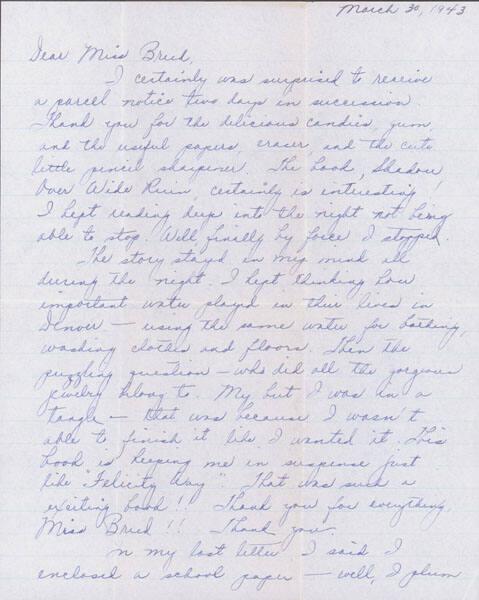 March 30, 1943
Dear Miss Breed,
I certainly was surprised to receive
a parcel notice two days in succession.
Thank you for the delicious candies, yum
and the useful papers, eraser, and the cute
little pencil sharpener. The book, Shadow
Over Wide Ruin, certainly is interesting!
I kept reading deep into the night not being
able to stop. Well, finally by force I stopped.
The story stayed in my mind all
during the night. I kept thinking how
important water played in their lives in
Denver — using the same water for bathing,
washing clothes and floors. Then the
puzzling question — who did all the gorgeous
jewelry belong to. My but I was in a
— that was because I wasn't
able to finish it like I wanted it. This
book is keeping me in suspense just
like "Felicity Way". That was such a
exciting book!! Thank you for everything,
Miss Breed!! Thank you.
In my last letter I said I
enclosed a school paper — well, I plum